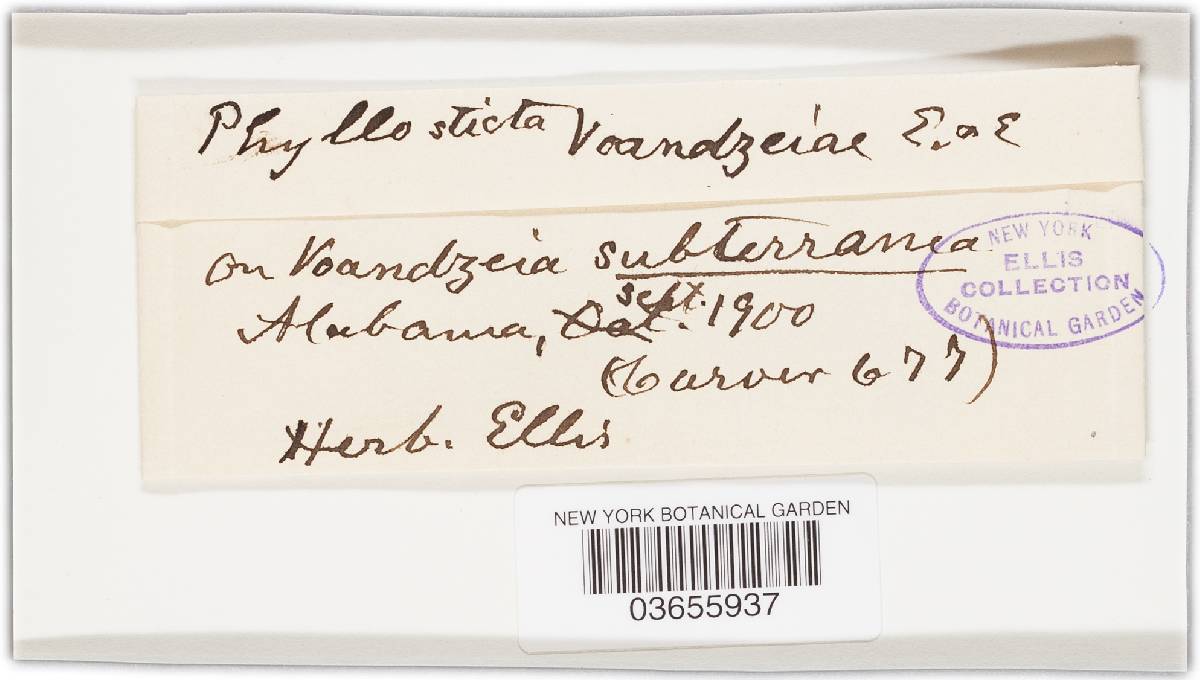 Phyllosticta Voandzeiae E. & E
on Voandzeia subterranea
Sept.
Alabama, Oct. 1900
(Carver 677)
Herb. Ellis
NEW YORK
ELLIS
COLLECTION
BOTANICAL GARDEN
NEW YORK BOTANICAL GARDEN
03655937